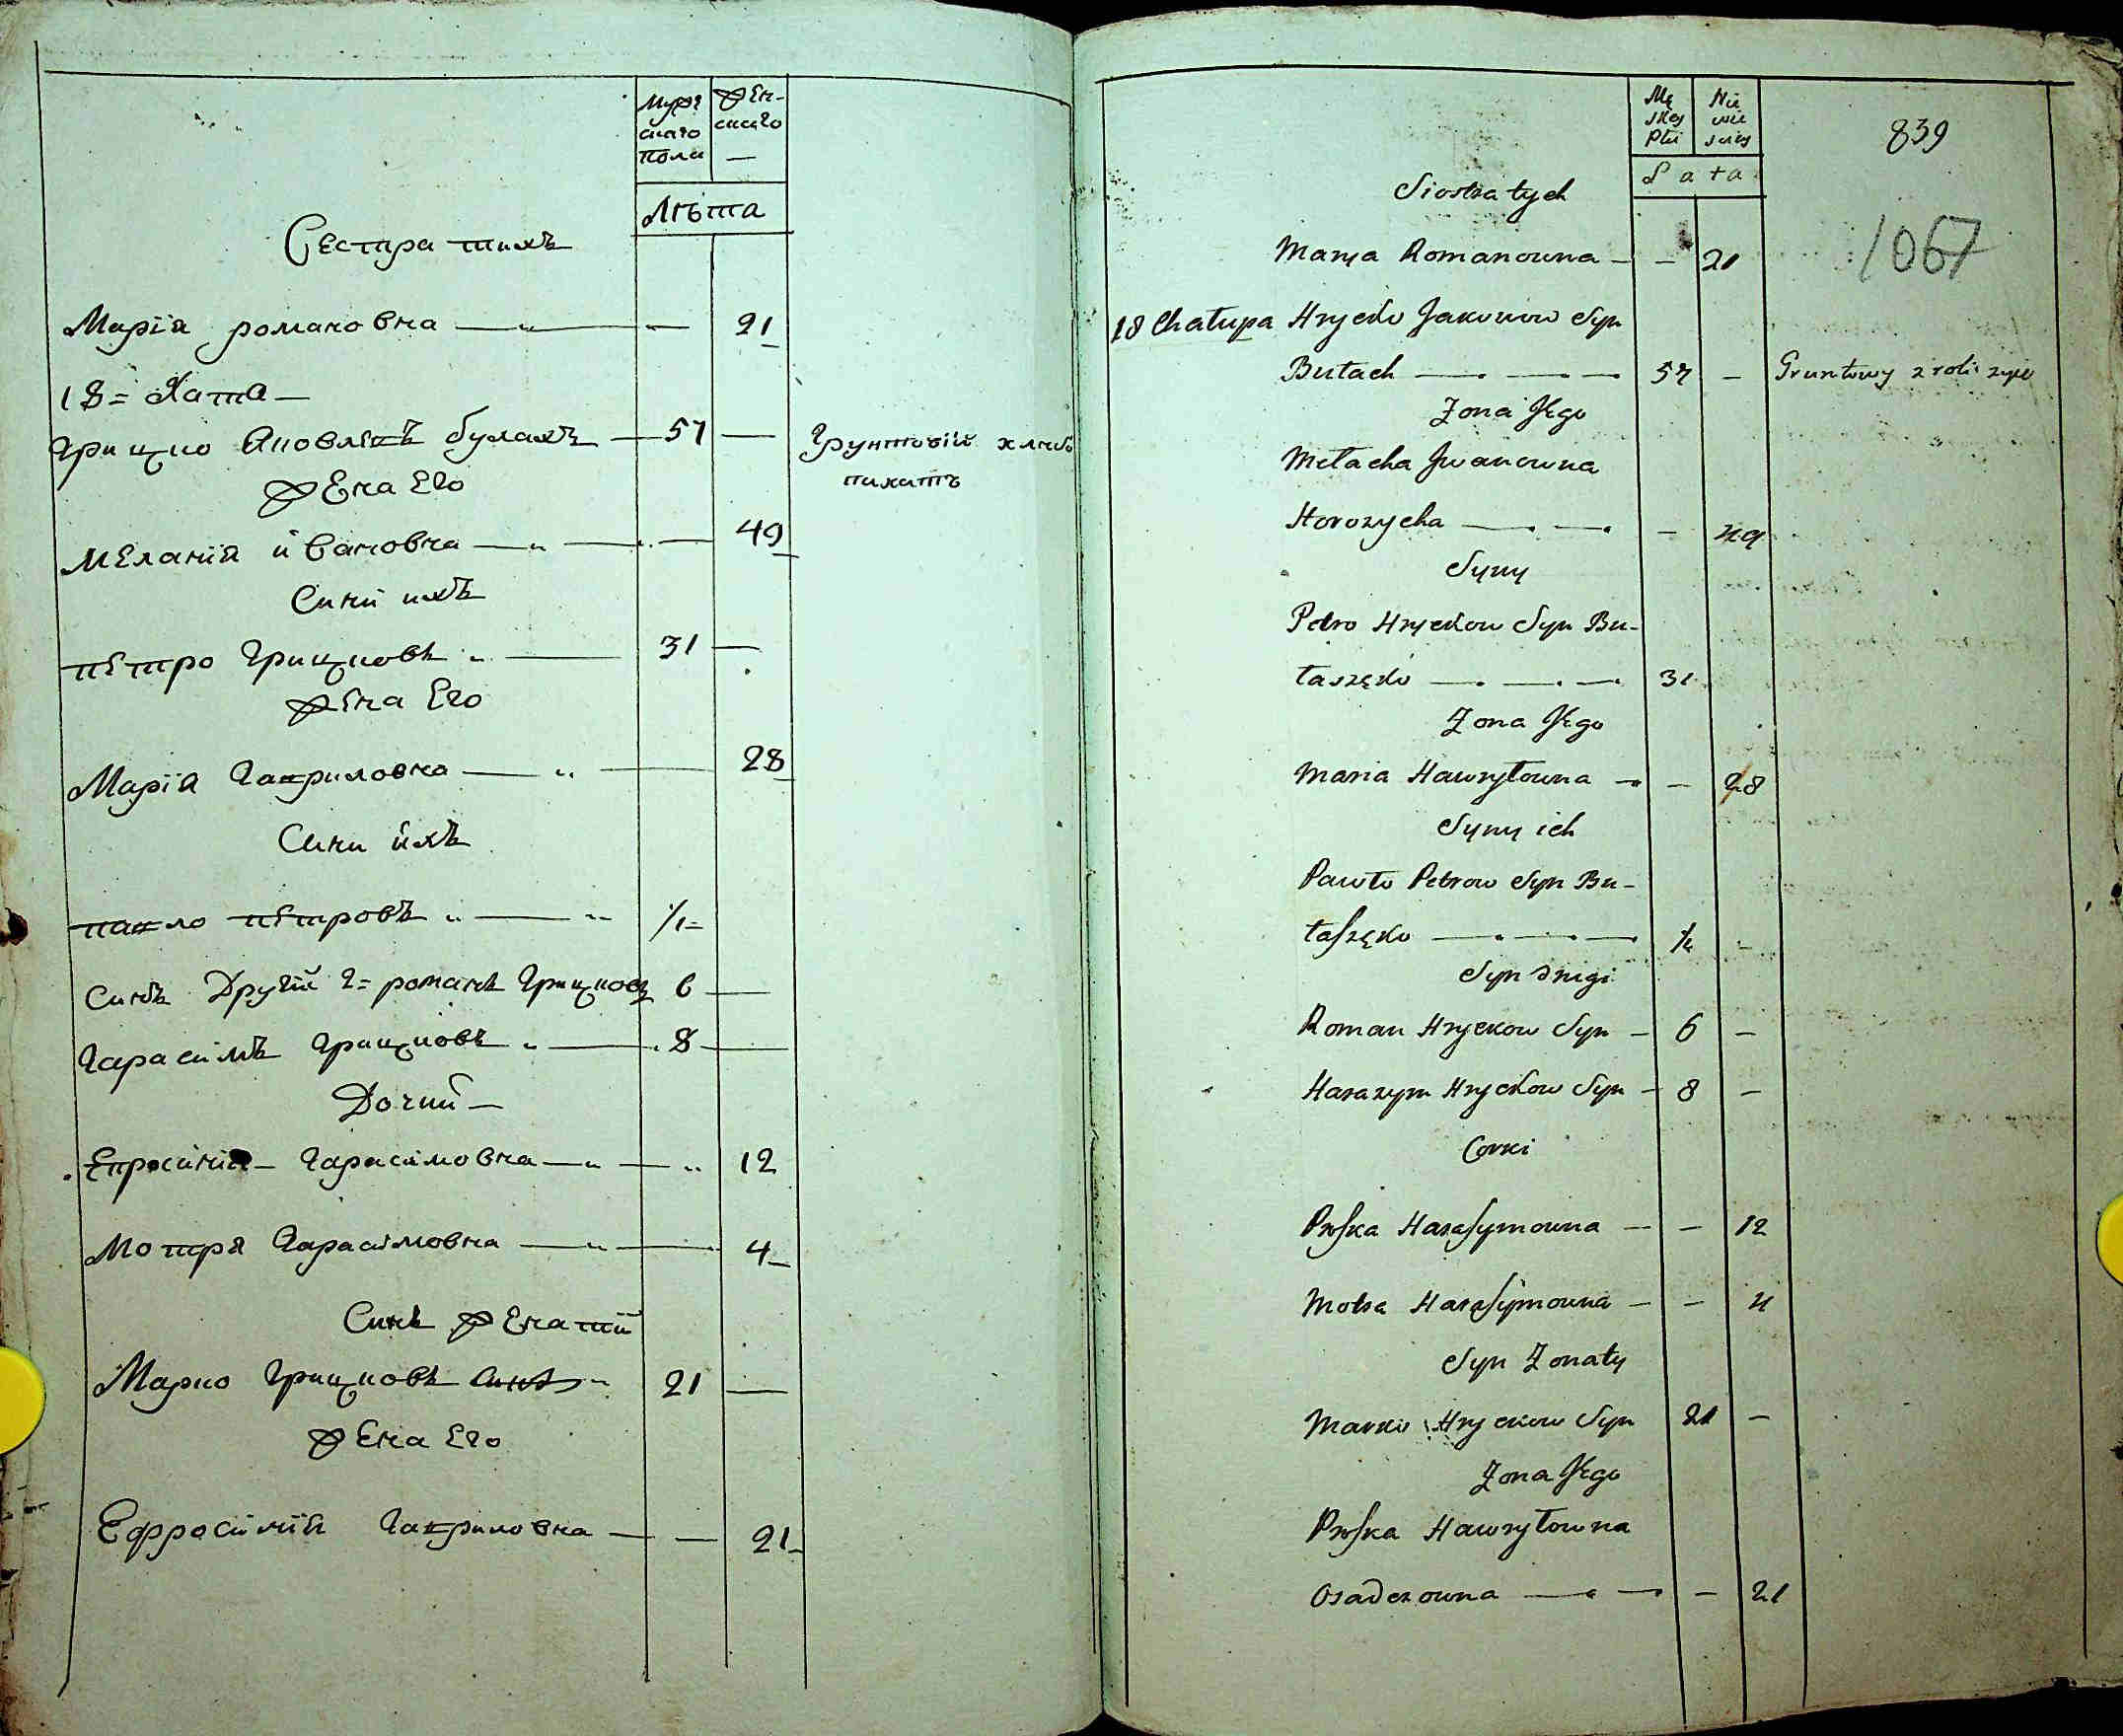 Мужескаго пола
Женскаго
Лѣта
Сестра тихъ
Марія романовна — 21
18 = Хата —
Грицко Яковлевъ булахъ — 57 — Грунтовій хлебо
пахатъ
Жена Его
Меланія ивановна — 49
Сини ихъ
петро Грицковъ — 31 —
Жена Его
Марія Гавриловна — 28
Сини ихъ
павло петровъ — 1/1
Синъ Другій 2= романъ Грицковъ 6 —
Гарасимъ Грицковъ — 8 —
Дочки —
Епросинія — Гарасимовна — 12
Мотря Гарасимовна — 4
Синъ Женатий
Марко Грицковъ синъ 21 —
Жена Его
Ефросинія Гавриловна — 21
Mę
skej
Płci
Nie
wie
sciej
Lata
839
1067
Siostra tych
Marya Romanowna — — 21
18 Chałupa Hrycko Jakowow Syn
Bułach — — — 57 — Gruntowy z roli żyie
Zona Jego
Mełacha Jwanowna
Horozycha — — — 49
Syny
Petro Hryckow Syn Bu-
łaszęko — — — 31
Zona Jego
Maria Hawryłowna — — 28
Syny ich
Pawło Petrow Syn Bu-
łaszęko — — — 1/4 —
Syn drugi
Roman Hryckow Syn — 6 —
Harazym Hryckow Syn — 8 —
Corki
Proska Harasymowna — — 12
Motra Harasymowna — — 4
Syn Zonaty
Marko Hryckow Syn 21 —
Zona Jego
Proska Hawryłowna
Osadczowna — — — 21